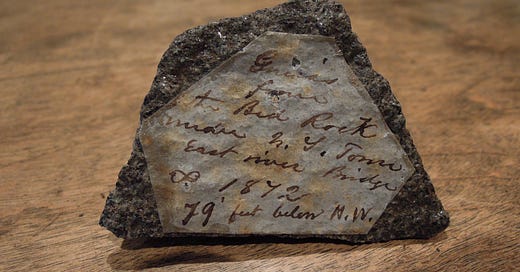 from
Bed Rock
under N. Y. Tower
East river Bridge
1872
79 feet below H. W.